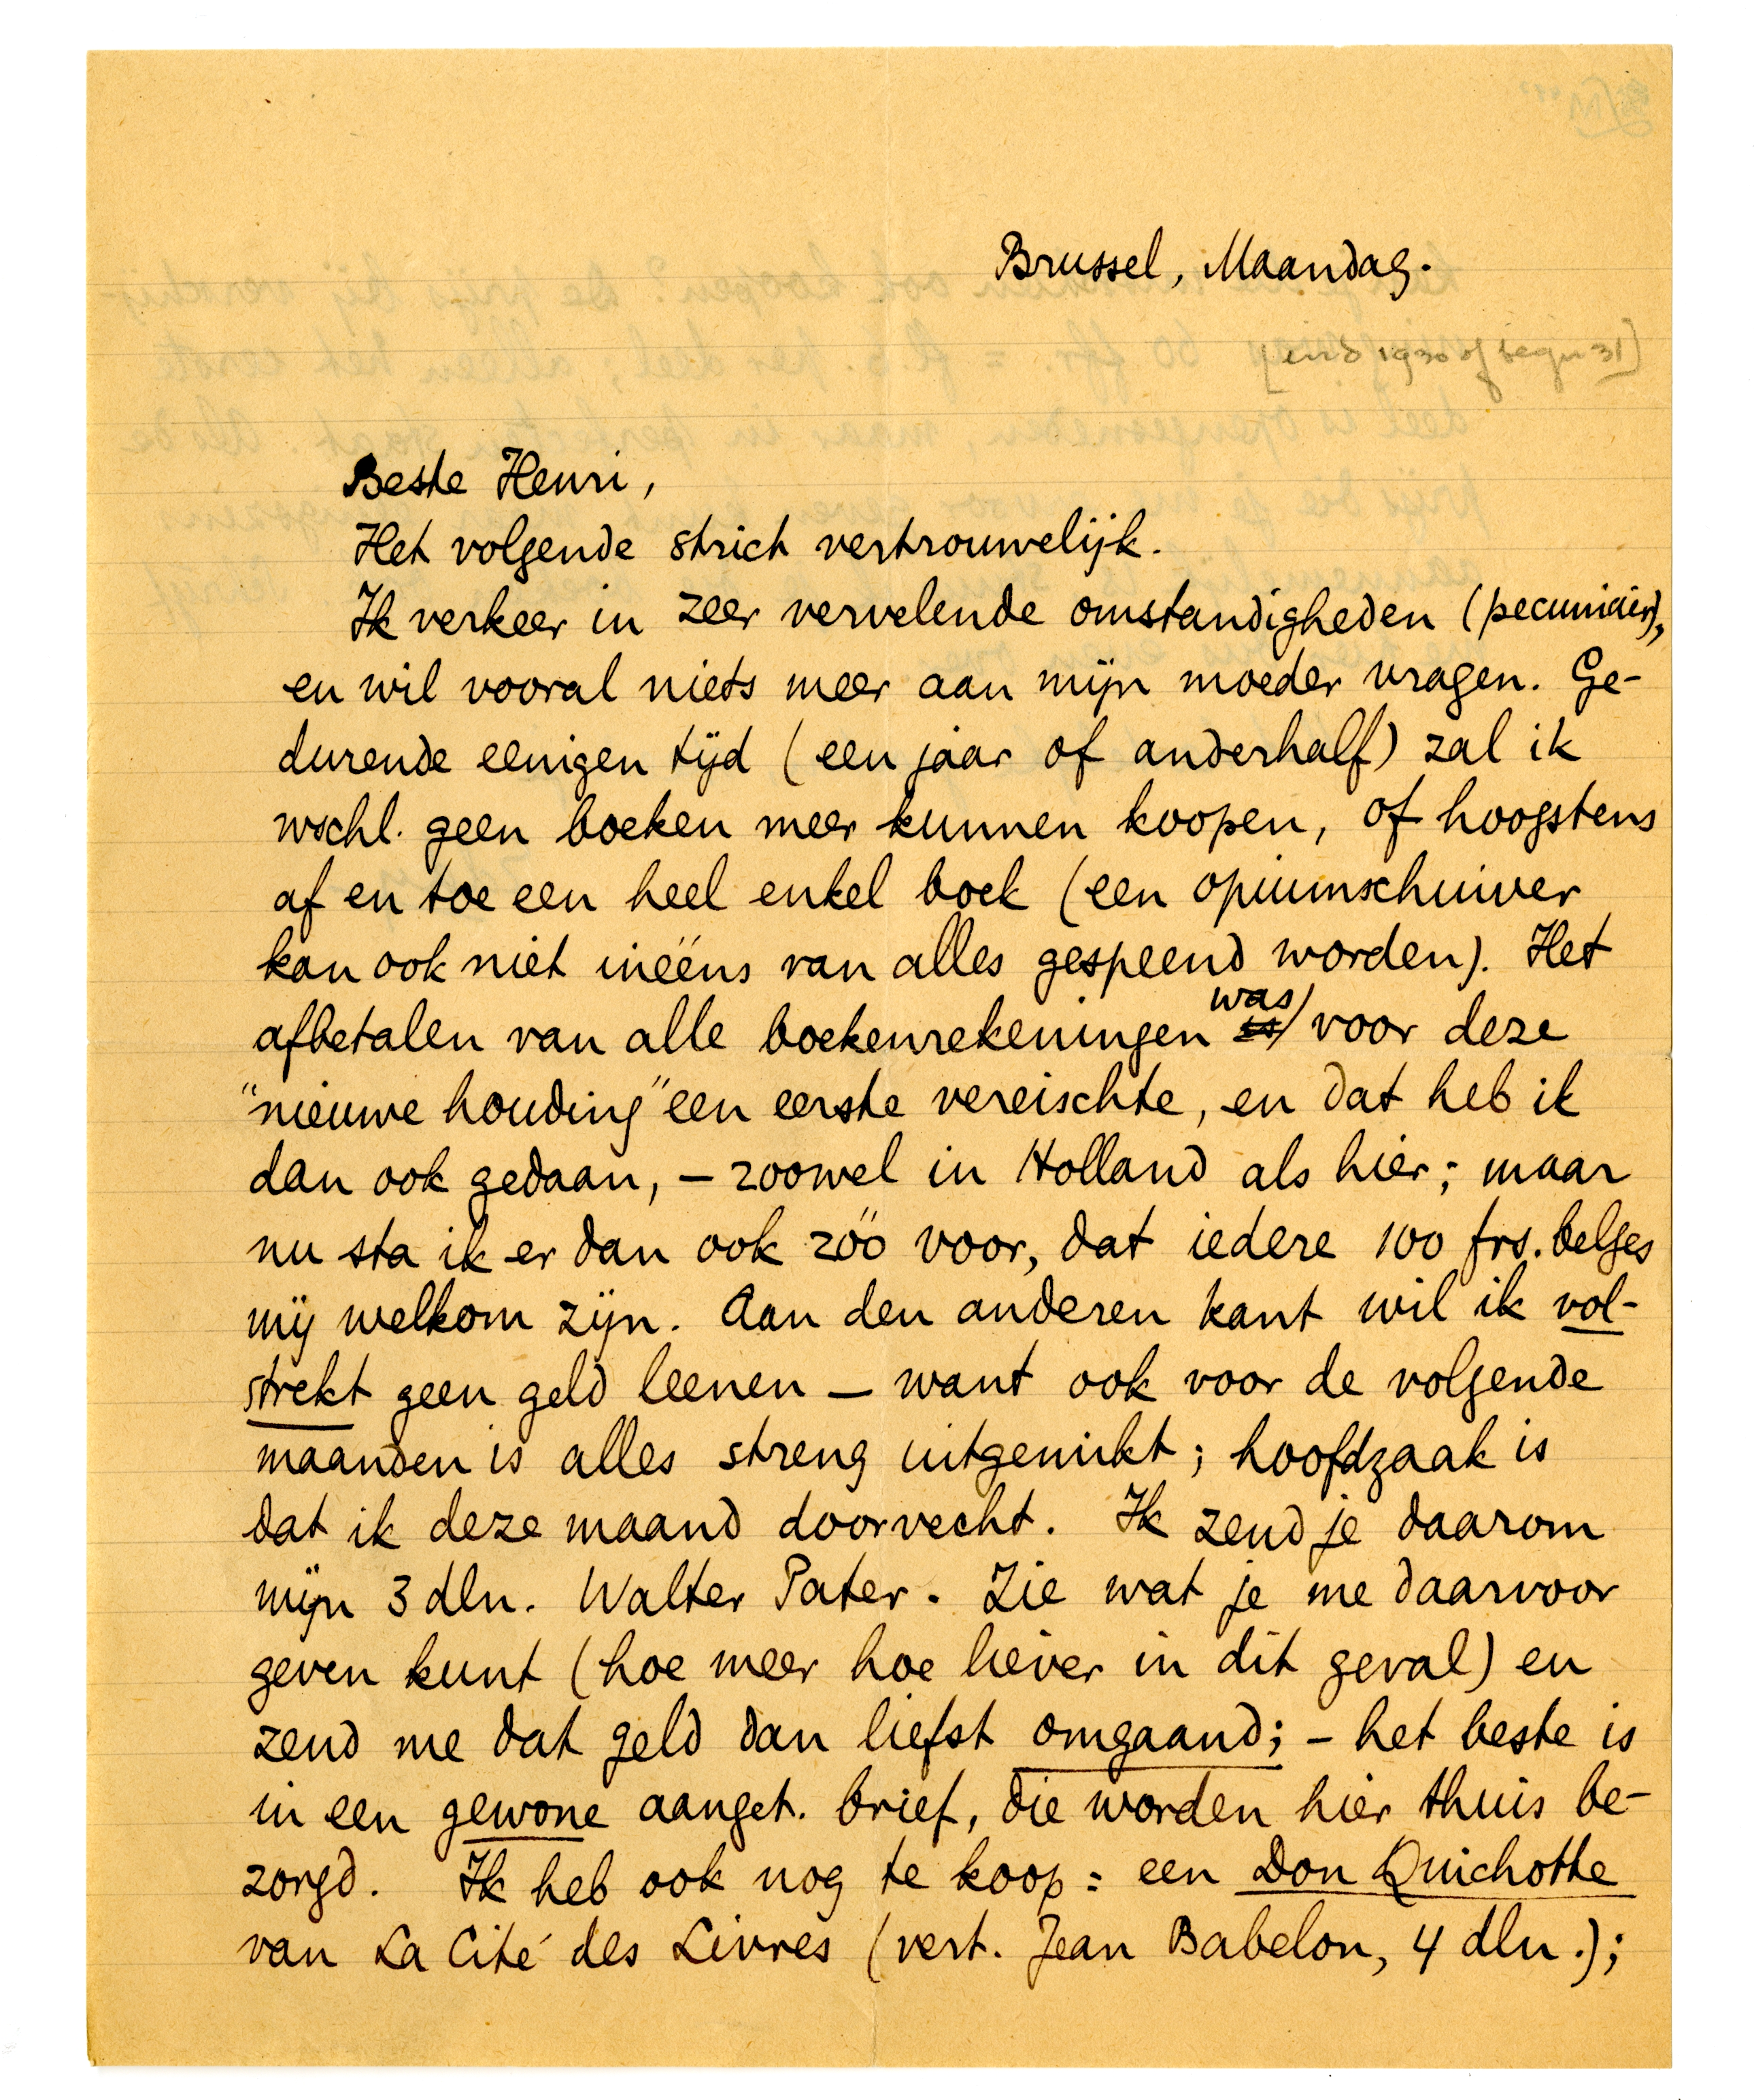 Brussel, Maandag.
[eind 1930 of begin 31]
Beste Henri,
Het volgende strict vertrouwelijk.
Ik verkeer in zeer vervelende omstandigheden (pecuniair),
en wil vooral niets meer aan mijn moeder vragen. Ge-
durende eenigen tijd (een jaar of anderhalf) zal ik
wschl. geen boeken meer kunnen koopen, of hoogstens
af en toe een heel enkel boek (een opiumschuiver
kan ook niet inééns van alles gespeend worden). Het
afbetalen van alle boekenrekeningen was voor deze
"nieuwe houding" een eerste vereischte, en dat heb ik
dan ook gedaan, – zoowel in Holland als hier; maar
nu sta ik er dan ook zóó voor, dat iedere 100 frs. belges
mij welkom zijn. Aan den anderen kant wil ik vol-
strekt geen geld leenen – want ook voor de volgende
maanden is alles streng uitgemikt; hoofdzaak is
dat ik deze maand doorvecht. Ik zend je daarom
mijn 3 dln. Walter Pater. Zie wat je me daarvoor
geven kunt (hoe meer hoe liever in dit geval) en
zend me dat geld dan liefst omgaand; – het beste is
in een gewone aanget. brief, die worden hier thuis be-
zorgd. Ik heb ook nog te koop: een Don Quichotte
van La Cité des Livres (vert. Jean Babelon, 4 dln.);